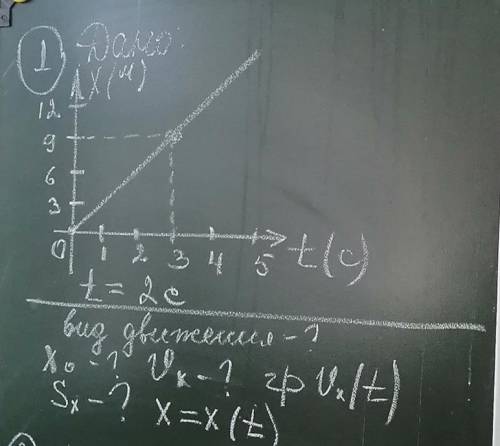 1 Дано:
X(м)
12
9
6
3
0 1 2 3 4 5 t(c)
t = 2c
вид движения - ?
X₀ - ? Vx - ? гр Vx(t)
Sx - ? X = X(t)